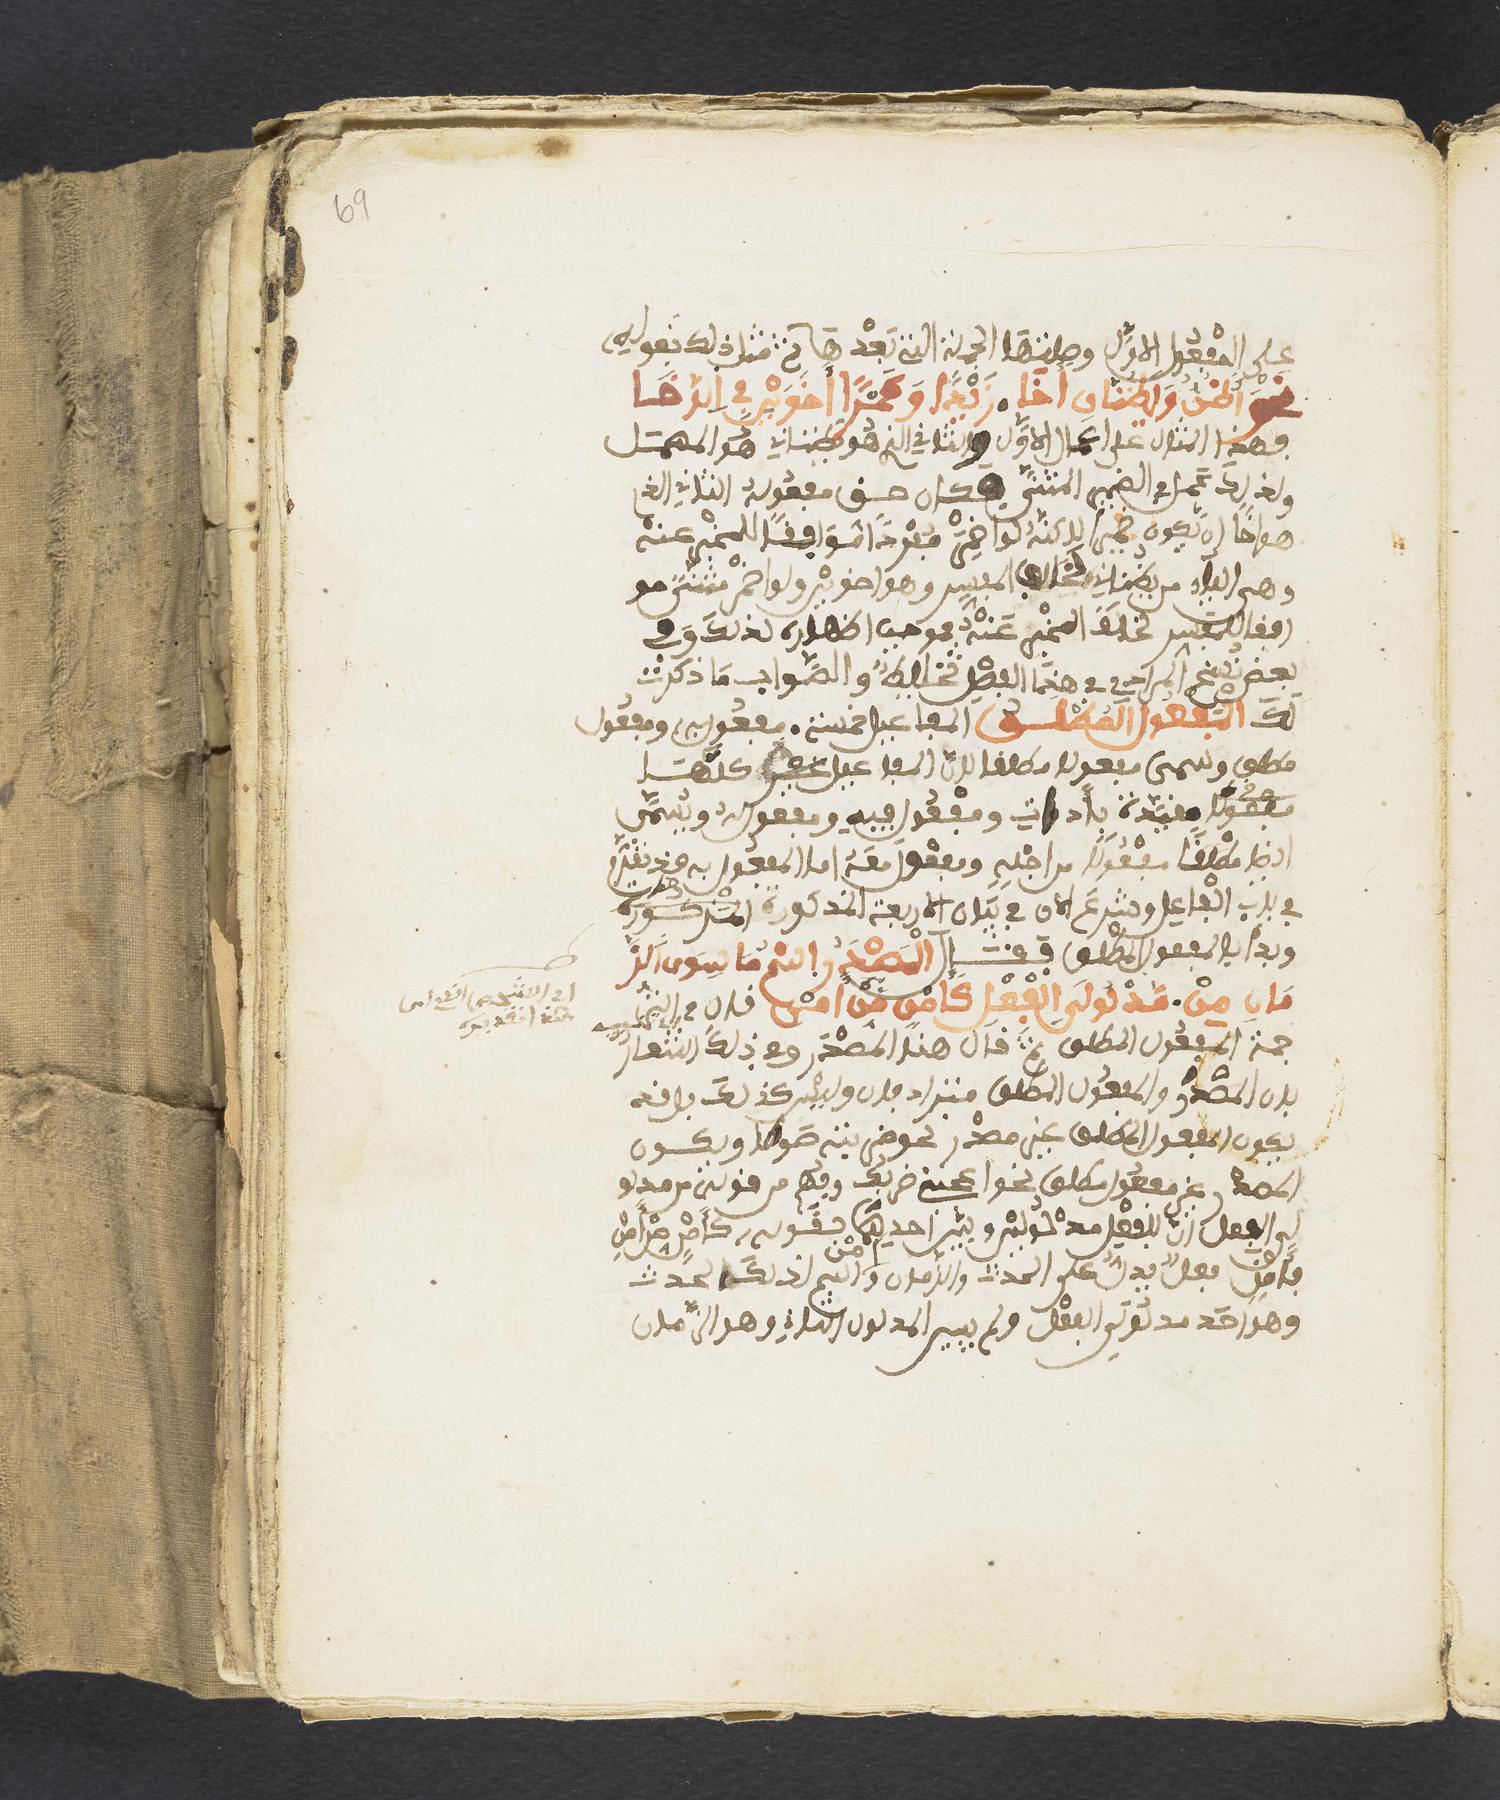 69
على المفعول الاول وصلتها الجملة التي بعدها ثم مثل ذلك بقوله
نحو أظن ويظناني أخا . زيدا وعمرا أخوين في الرخا
فهذا المثال على اعمال الاول والثاني الذي هو يظناني هو المهمل
ولذلك عمل في الضمير المثنى فكان حق مفعوله الثاني الذي
هو اخا ان يكون ضميرا لكنه لو اضمر مفردا موافقا للمخبر عنه
وهي الياء من يظناني لخالف المفسر وهو اخوين ولو اضمر مثنى مو
افقا للمفسر لخالف المخبر عنه فوجب اظهاره لذلك وفي
بعض نسخ المرادي في هذا الفصل تخاليط والصواب ما ذكرت
لك المفعول المطلق المفاعيل خمسة . مفعول به ومفعول
مطلق وسمي مفعولا مطلقا لان المفاعيل غيره كلها
مقيدة بأدوات ومفعول فيه ومفعول له ويسمى
ايضا مفعولا من اجله ومفعول معه اما المفعول به فقد تقدم
في باب الفاعل وشرع الان في بيان الاربعة المذكورة
وبدأ بالمفعول المطلق فقال المصدر اسم ما سوى الز
مان من . مدلولي الفعل كأمن من امن قال في الترجمة
المفعول المطلق ثم قال هنا المصدر وفي ذلك اشعار
بان المصدر والمفعول المطلق مترادفان وليس كذلك بل قد
يكون المفعول المطلق غير مصدر نحو ضربته سوطا ويكون
المصدر غير مفعول مطلق نحو اعجبني ضربك وفهم من قوله من مدلو
لي الفعل ان للفعل مدلولين وبين احديهما بقوله كأمن من أمن
فأمن فعل يدل على الحدث والزمان وأمن اسم لذلك الحدث
وهو احد مدلولي الفعل ولم يبين المدلول الثاني وهو الزمان